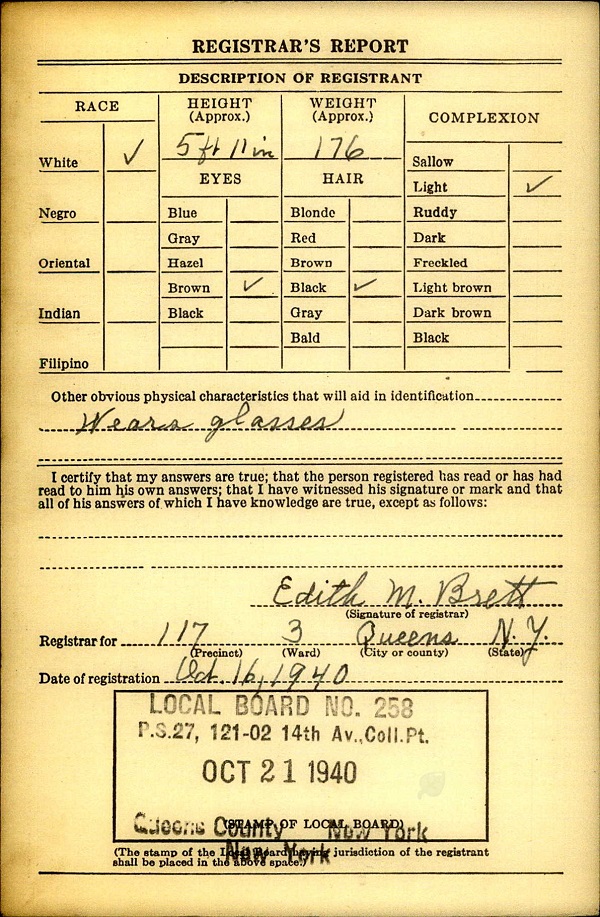 REGISTRAR'S REPORT
DESCRIPTION OF REGISTRANT
RACE
HEIGHT
(Approx.)
WEIGHT
(Approx.)
COMPLEXION
White ✓
5 ft 11 in
176
Sallow
EYES
HAIR
Light ✓
Negro
Blue
Blonde
Ruddy
Gray
Red
Dark
Oriental
Hazel
Brown
Freckled
Brown ✓
Black ✓
Light brown
Indian
Black
Gray
Dark brown
Bald
Black
Filipino
Other obvious physical characteristics that will aid in identification
Wears glasses
I certify that my answers are true; that the person registered has read or has had
read to him his own answers; that I have witnessed his signature or mark and that
all of his answers of which I have knowledge are true, except as follows:
Edith M. Brett
(Signature of registrar)
Registrar for 117 3 Queens N.Y.
(Precinct) (Ward) (City or county) (State)
Date of registration Oct. 16, 1940
LOCAL BOARD NO. 258
P.S.27, 121-02 14th Av.,Coll.Pt.
OCT 21 1940
Queens County New York
(STAMP OF LOCAL BOARD)
New York
(The stamp of the Local Board having jurisdiction of the registrant
shall be placed in the above space.)